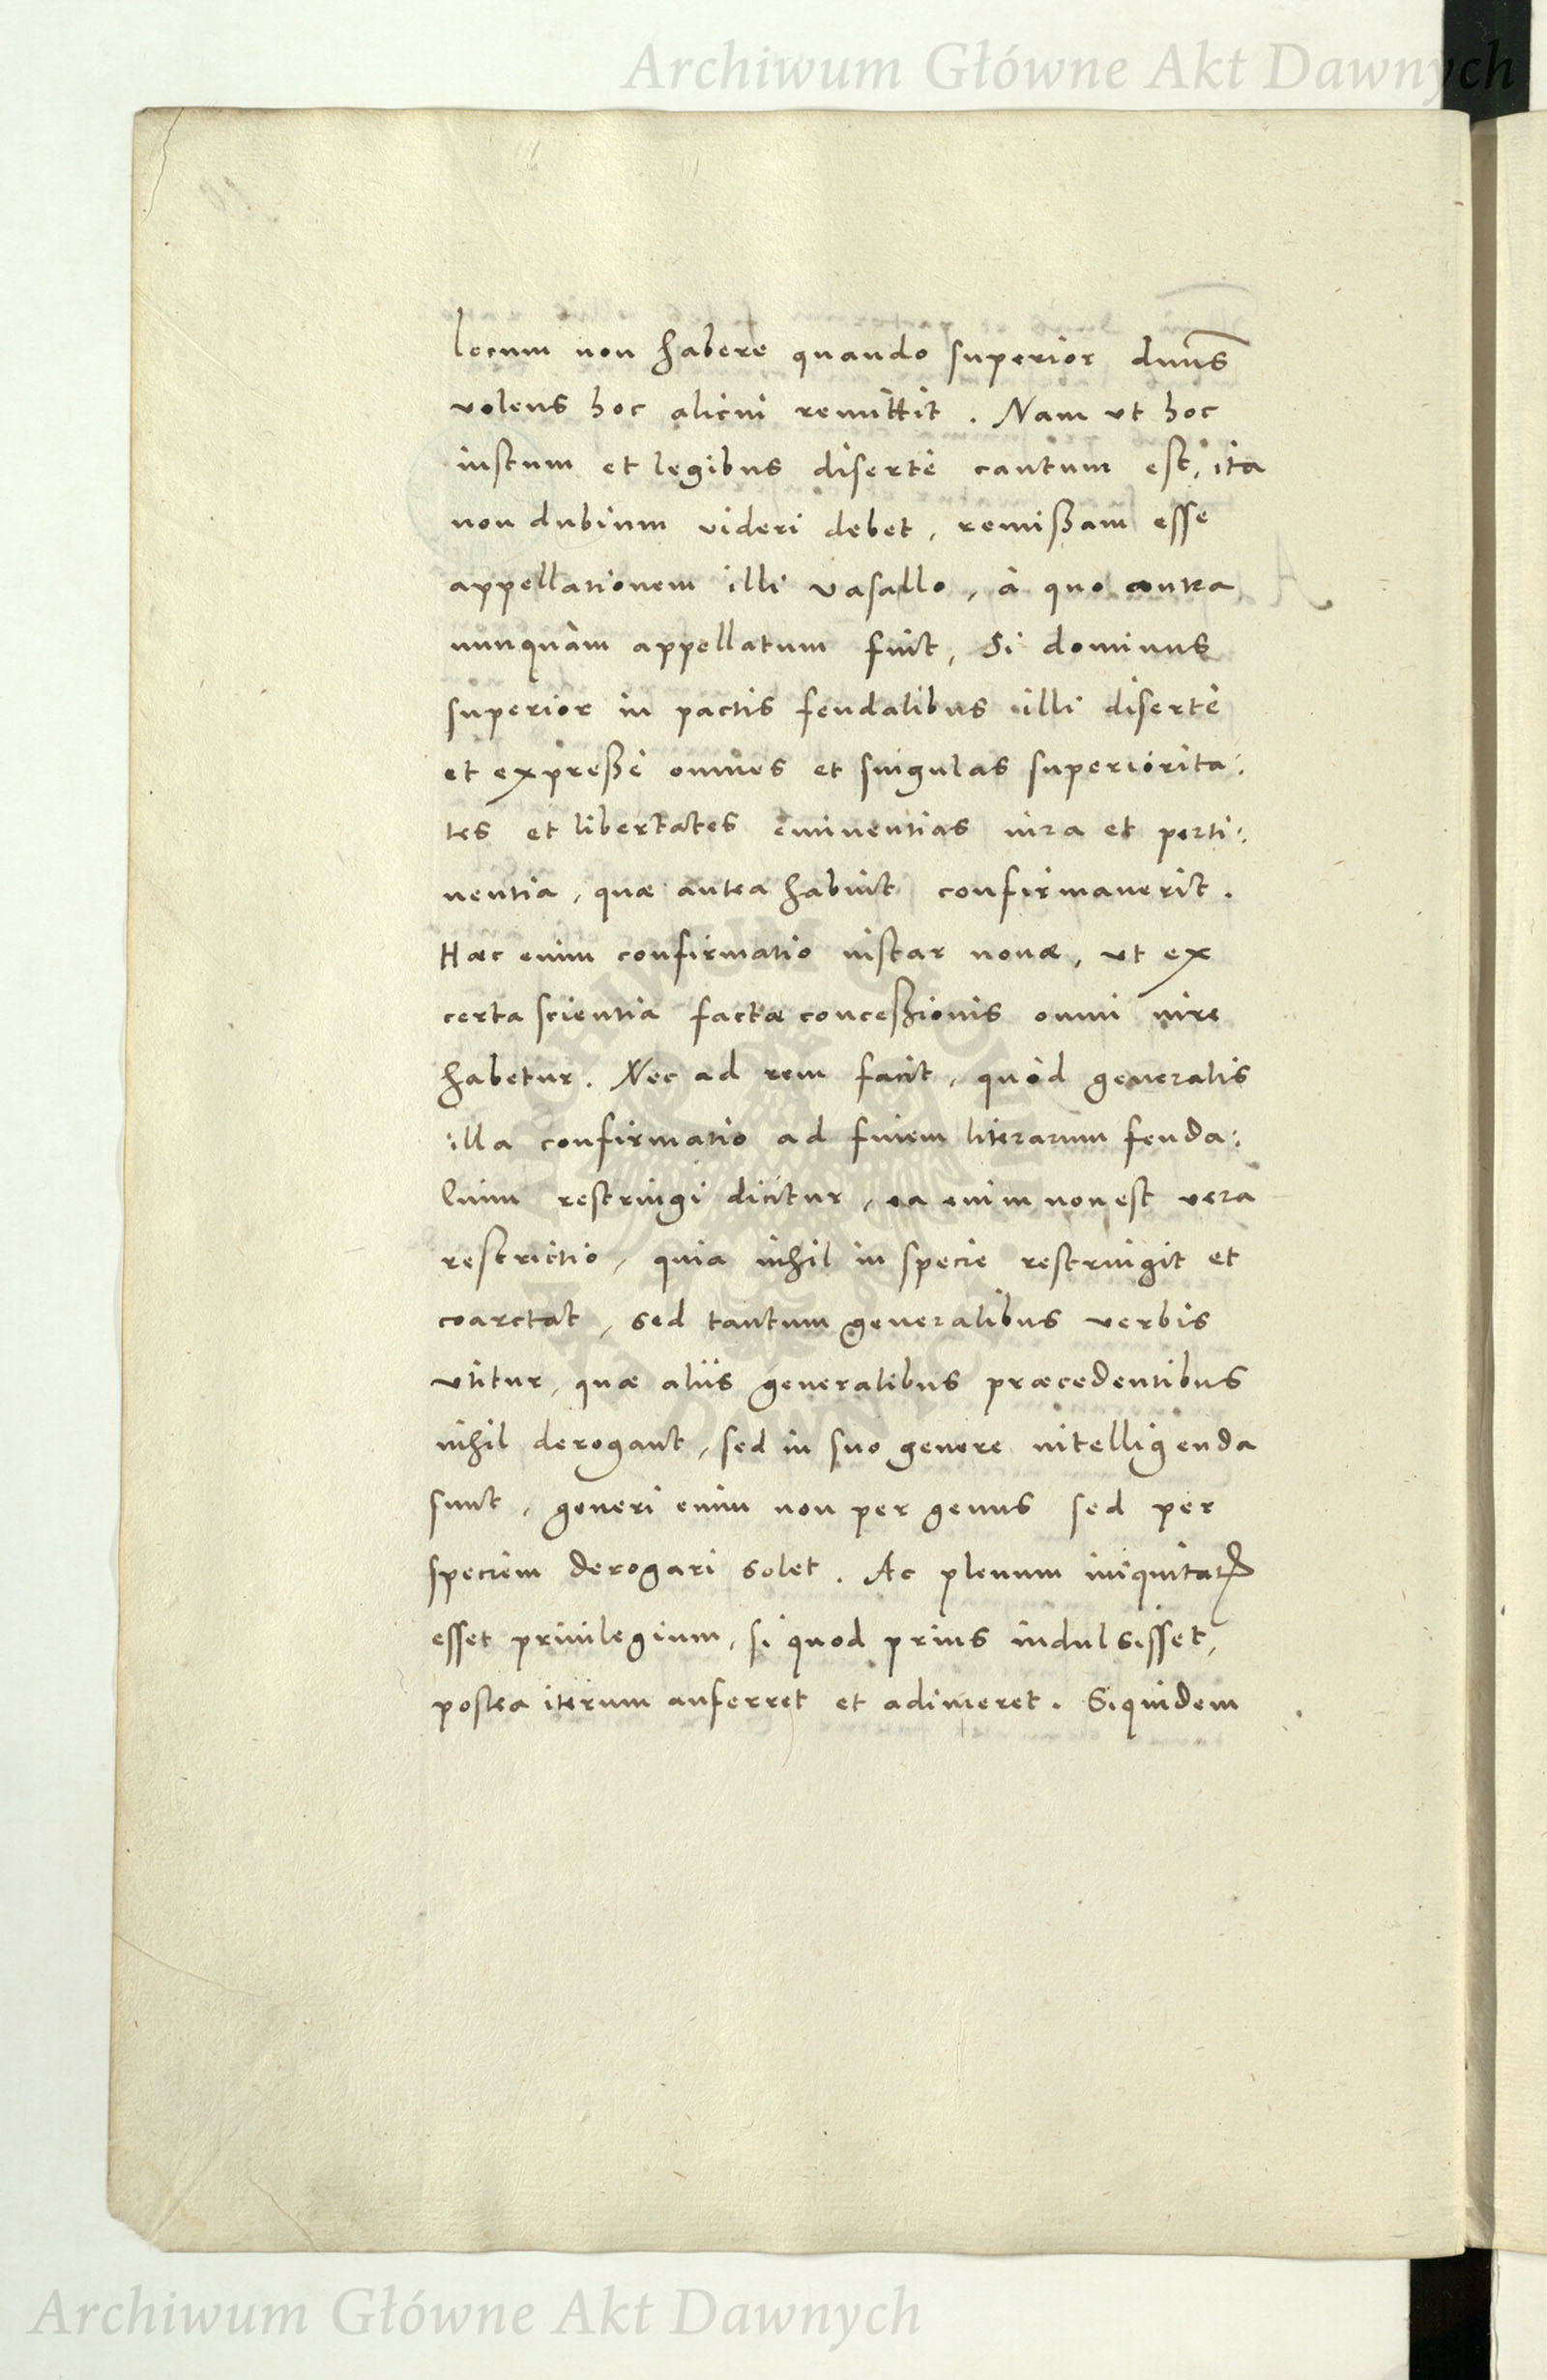 Archiwum Główne Akt Dawnych
locum non habere quando superior dnus
volens hoc alicui remittit. Nam vt hoc
iustum et legibus disertè cautum est, ita
non dubium videri debet, remißam esse
appellationem illi vasallo, à quo contra
nunquàm appellatum fuit, Si dominus
superior in pactis feudalibus illi disertè
et expreßè omnes et singulas superiorita:
tes et libertates eminentias iura et perti:
nentia, quæ antea habuit confirmauerit.
Hæc enim confirmatio instar nouæ, vt ex
certa scientia factæ conceßionis omni iure
habetur. Nec ad rem facit, quòd generalis
illa confirmatio ad finem literarum feuda:
lium restringi dicitur, ea enim non est vera
restrictio, quia nihil in specie restringit et
coarctat, sed tantum generalibus verbis
vtitur, quæ aliis generalibus præcedentibus
nihil derogant, sed in suo genere intelligenda
sunt, generi enim non per genus sed per
speciem derogari solet. Ac plenum iniquitatis
esset priuilegium, si quod prius indulsisset,
postea iterum auferret et adimeret. Siquidem
Archiwum Główne Akt Dawnych